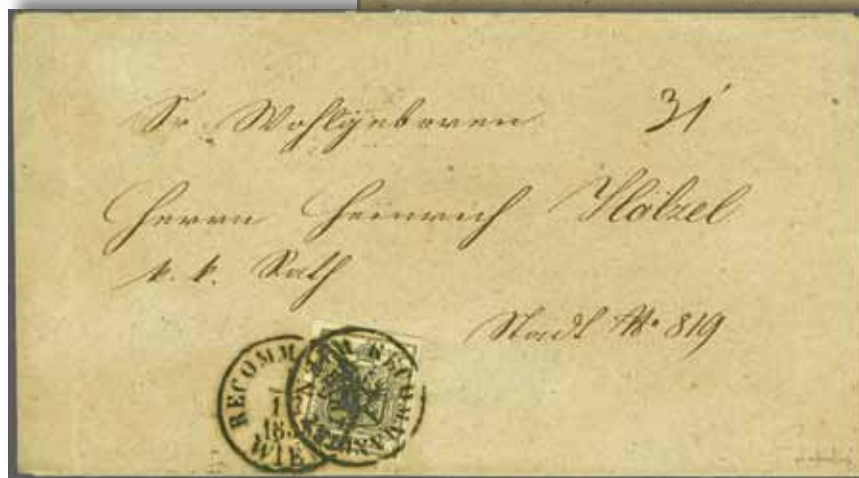 Sr. Wohlgeboren 31
Herrn Heinrich Hölzel
k. k. Rath
Stadt No 819
RECOMM
WIE